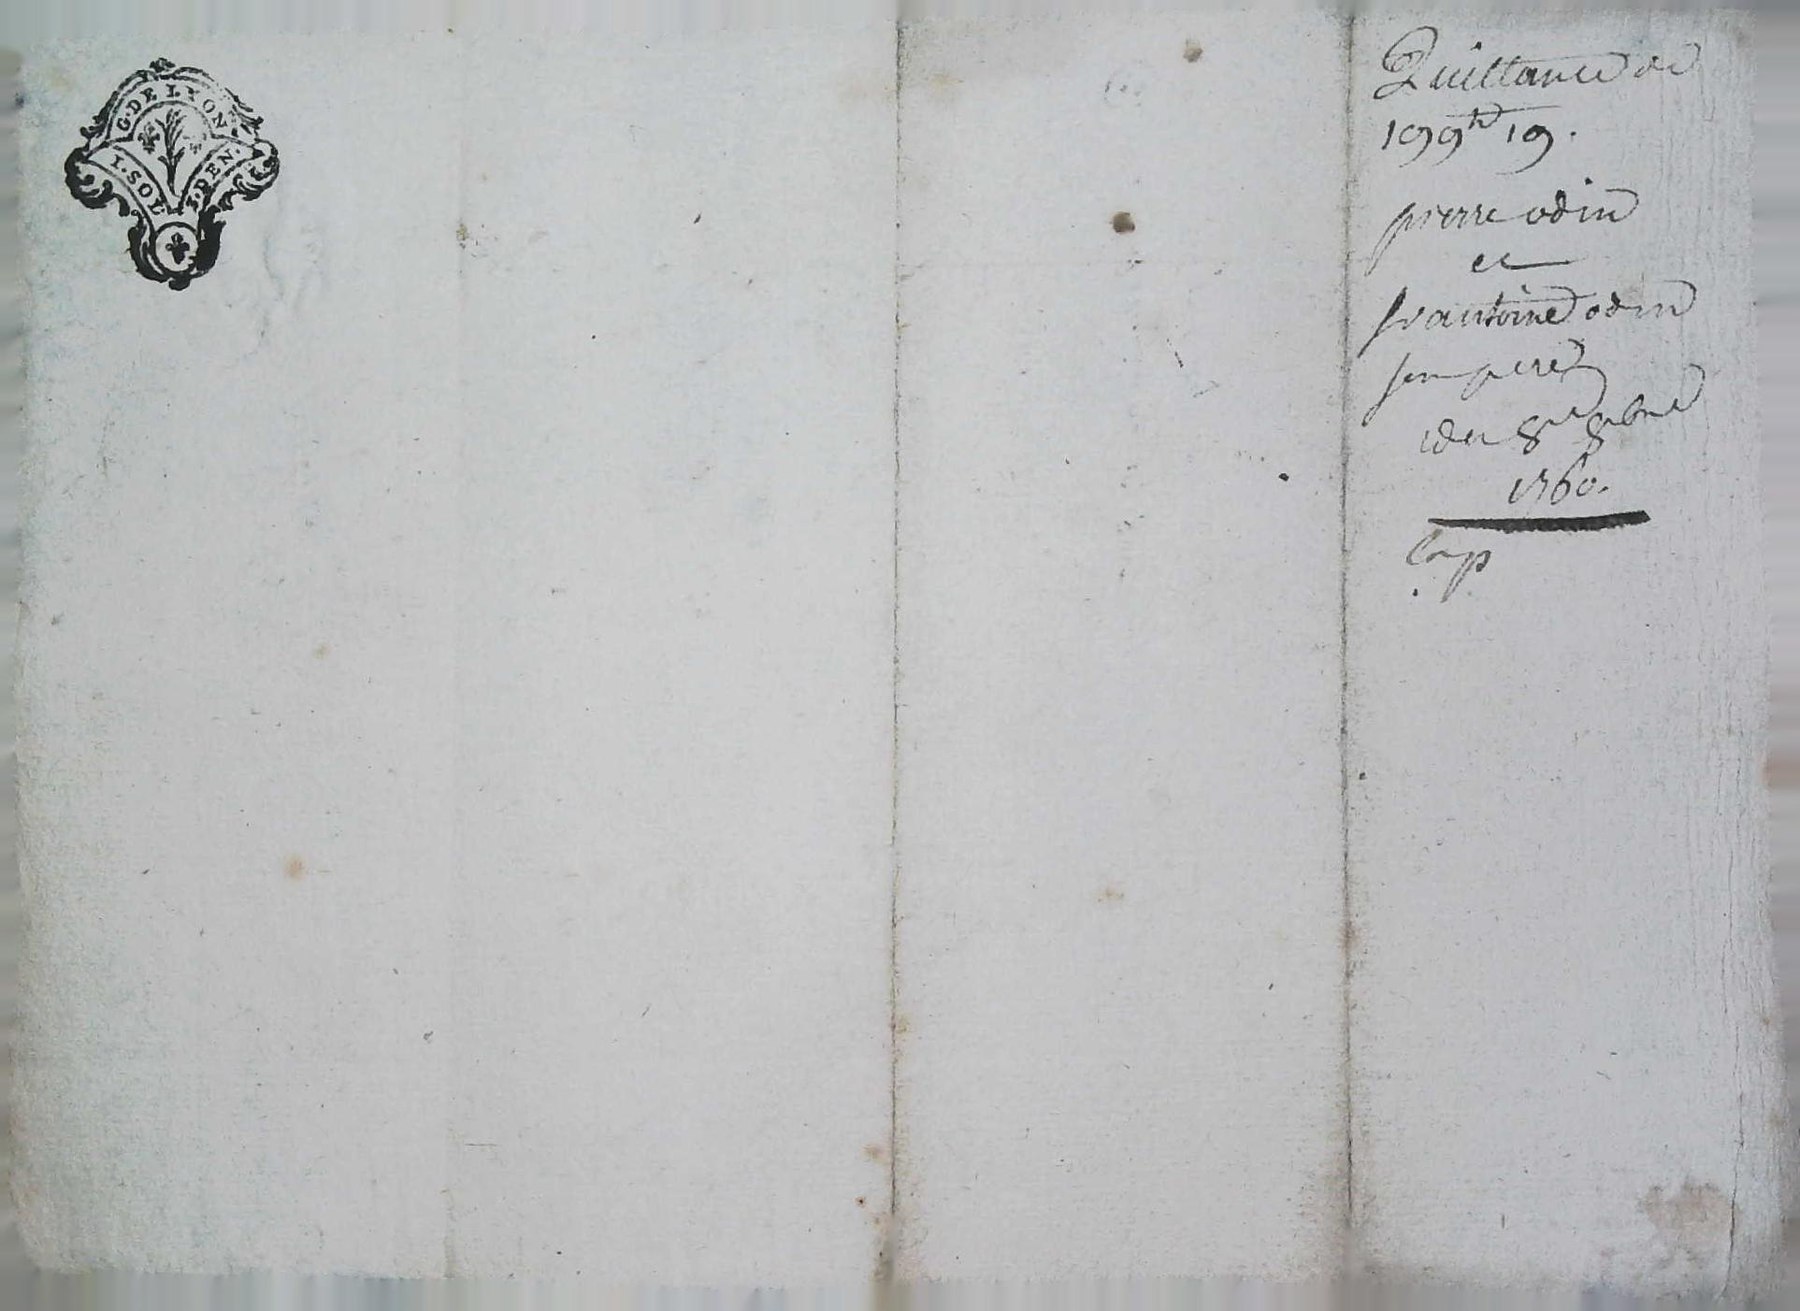 G. DE LYON
1. SOL
DEN.
Quittance de
199ᵗᵗ 19.
pierre odin
et
sr antoine odin
son pere
du 8e 8bre
1760.